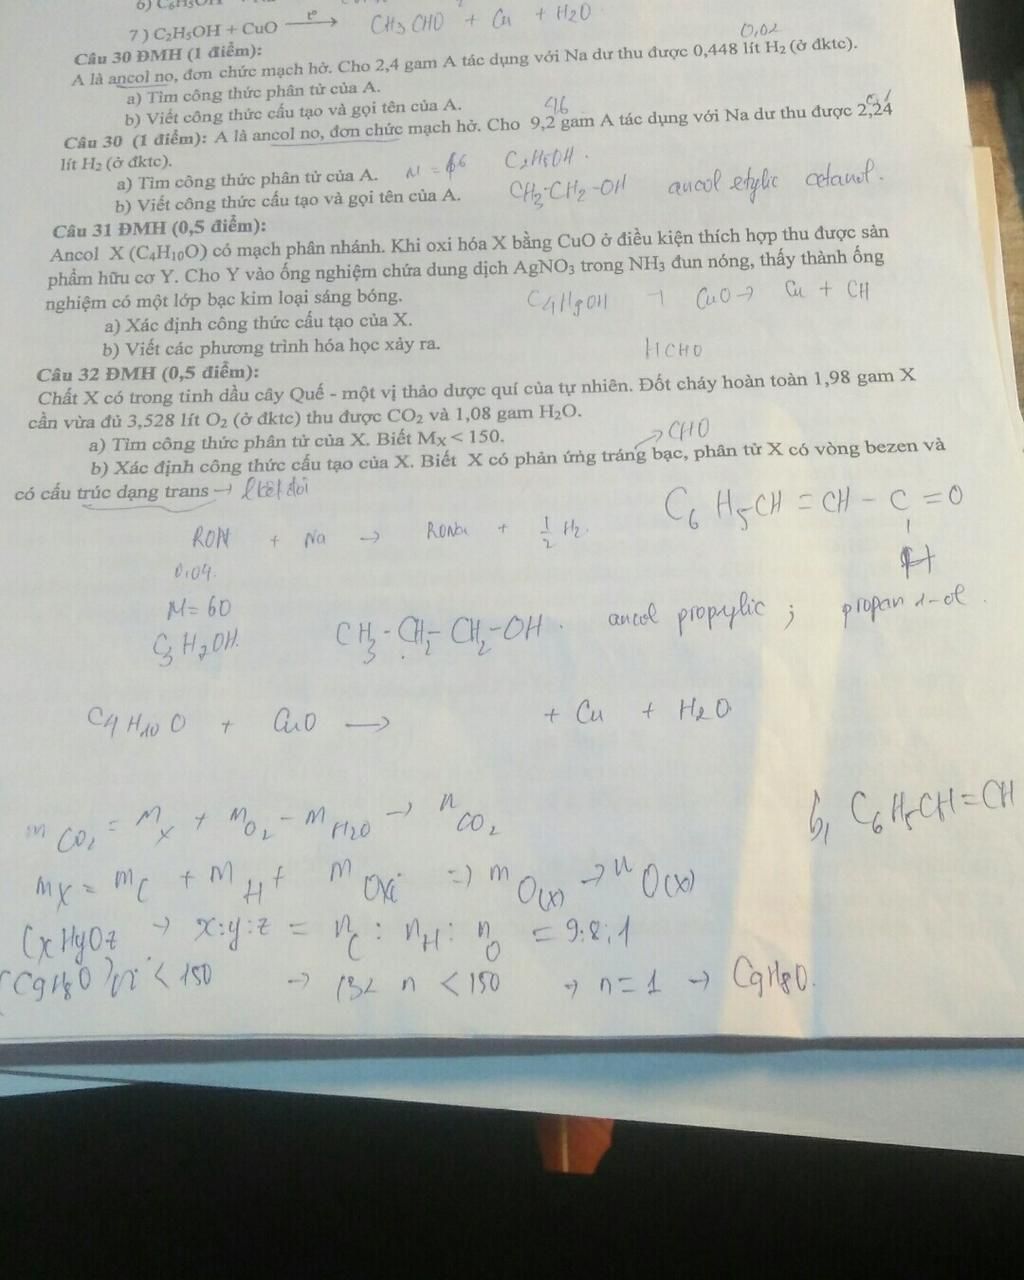 6) C₆H₅OH
7) C₂H₅OH + CuO —t°→ CH₃CHO + Cu + H₂O
Câu 30 ĐMH (1 điểm):
0,02
A là ancol no, đơn chức mạch hở. Cho 2,4 gam A tác dụng với Na dư thu được 0,448 lít H₂ (ở đktc).
a) Tìm công thức phân tử của A.
b) Viết công thức cấu tạo và gọi tên của A.
46 0,1
Câu 30 (1 điểm): A là ancol no, đơn chức mạch hở. Cho 9,2 gam A tác dụng với Na dư thu được 2,24
lít H₂ (ở đktc).
a) Tìm công thức phân tử của A. C₂H₅OH.
b) Viết công thức cấu tạo và gọi tên của A. CH₃-CH₂-OH ancol etylic
Câu 31 ĐMH (0,5 điểm):
Ancol X (C₄H₁₀O) có mạch phân nhánh. Khi oxi hóa X bằng CuO ở điều kiện thích hợp thu được sản
phẩm hữu cơ Y. Cho Y vào ống nghiệm chứa dung dịch AgNO₃ trong NH₃ đun nóng, thấy thành ống
nghiệm có một lớp bạc kim loại sáng bóng. C₄H₉OH + CuO → Cu + CH
a) Xác định công thức cấu tạo của X.
b) Viết các phương trình hóa học xảy ra. HCHO
Câu 32 ĐMH (0,5 điểm):
Chất X có trong tinh dầu cây Quế - một vị thảo dược quí của tự nhiên. Đốt cháy hoàn toàn 1,98 gam X
cần vừa đủ 3,528 lít O₂ (ở đktc) thu được CO₂ và 1,08 gam H₂O.
a) Tìm công thức phân tử của X. Biết Mₓ < 150. → CHO
b) Xác định công thức cấu tạo của X. Biết X có phản ứng tráng bạc, phân tử X có vòng bezen và
có cấu trúc dạng trans → lkết đôi
C₆H₅CH = CH - C = O
H
ROH + Na → RONa + 1/2 H₂.
0,04.
M = 60
C₃H₇OH. CH₃-CH₂-CH₂-OH. ancol propylic ; propan 1-ol.
C₄H₁₀O + CuO → + Cu + H₂O
m CO₂ = mₓ + m O₂ - m H₂O → n CO₂
b, C₆H₅CH=CH
mX = mC + mH + m Oxi => m O(X) → n O(X)
CxHyOz → x:y:z = nC : nH : nO = 9:8:1
(C₉H₈O)n < 150 → 132 n < 150 → n = 1 → C₉H₈O.